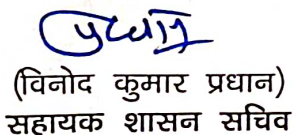 (विनोद कुमार प्रधान)
सहायक शासन सचिव